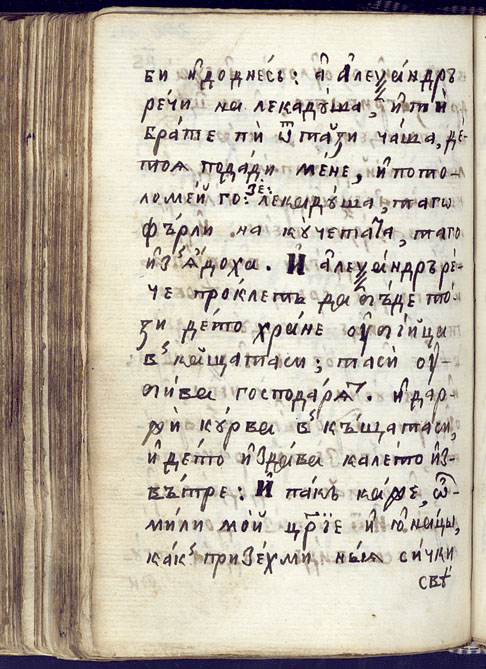 би и҆ до днéсь: а҆ А҆леѯáндръ
рéчи на лекадýша, и҆ ти
брáте пи ѿ тáзи чáша, дé-
тоѧ подáди мéне, и҆ пото-
ломéй го: зе: лекадýша, таго
фъ́рли на кýчетата, таго
и҆зꙗ҆́доха. И҆ а҆леѯáндръ рé-
че прóклетъ да бъ́де то́-
зи дéто хрáне ᲂу҆бі́йца
в къ́щатаси; таси ᲂу҆-
би́ва господáрꙗтъ. и҆ дар-
жи́ кýрва в къ́щатаси,
и҆ дéто и҆здáва кáлето и҆з-
въ́тре: И҆ пáкъ кáже, ѡ҆
ми́ли мóй цр҃їе и҆ ю҆нáцы,
кáкъ призéхми ны́ѧ си́чки
свѣ́